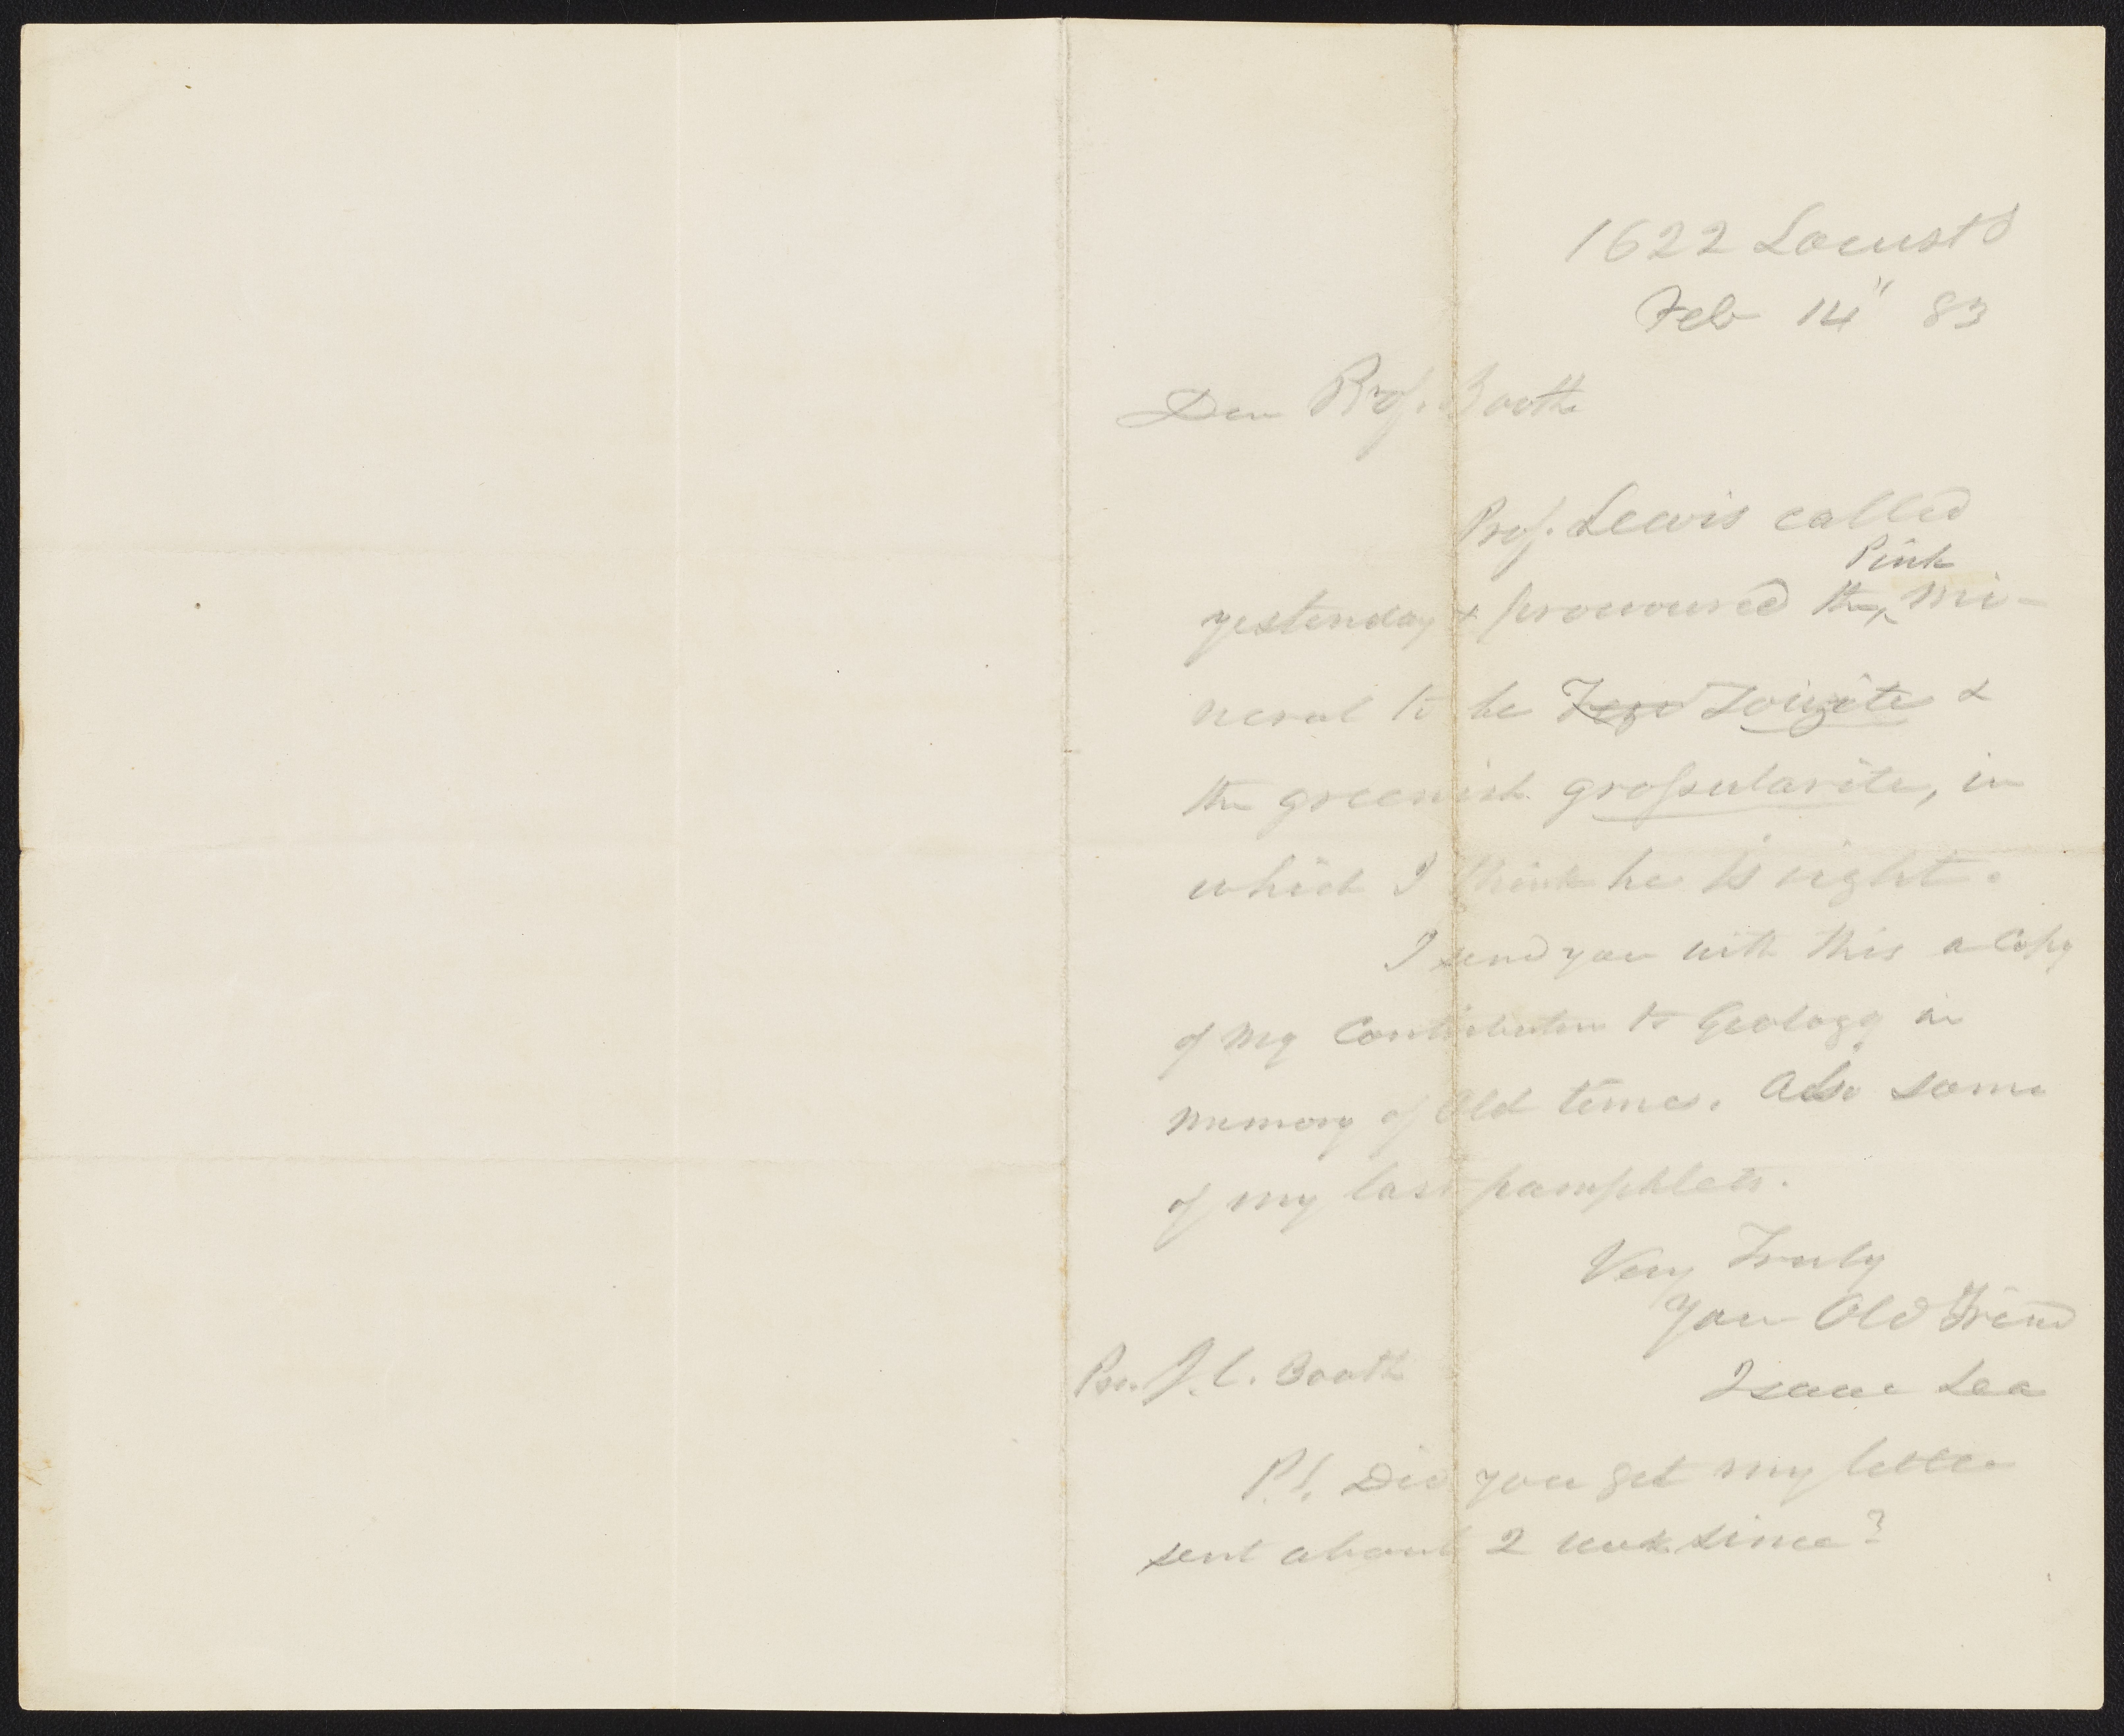 1622 Locust S
Feb 14" 83
Dear Prof. Booth
Prof. Lewis called
Pink
yesterday & pronounced the ^ mi-
neral to be Zoizite &
the greenish grossularite, in
which I think he is right.
I send you with this a Copy
of my Contribution to Geology in
memory of Old times. Also some
of my last pamphlets.
Very Truly
Your Old Friend
Isaac Lea
Prof. J. C. Booth
P.S. Did you get my letter
sent about 2 week since?